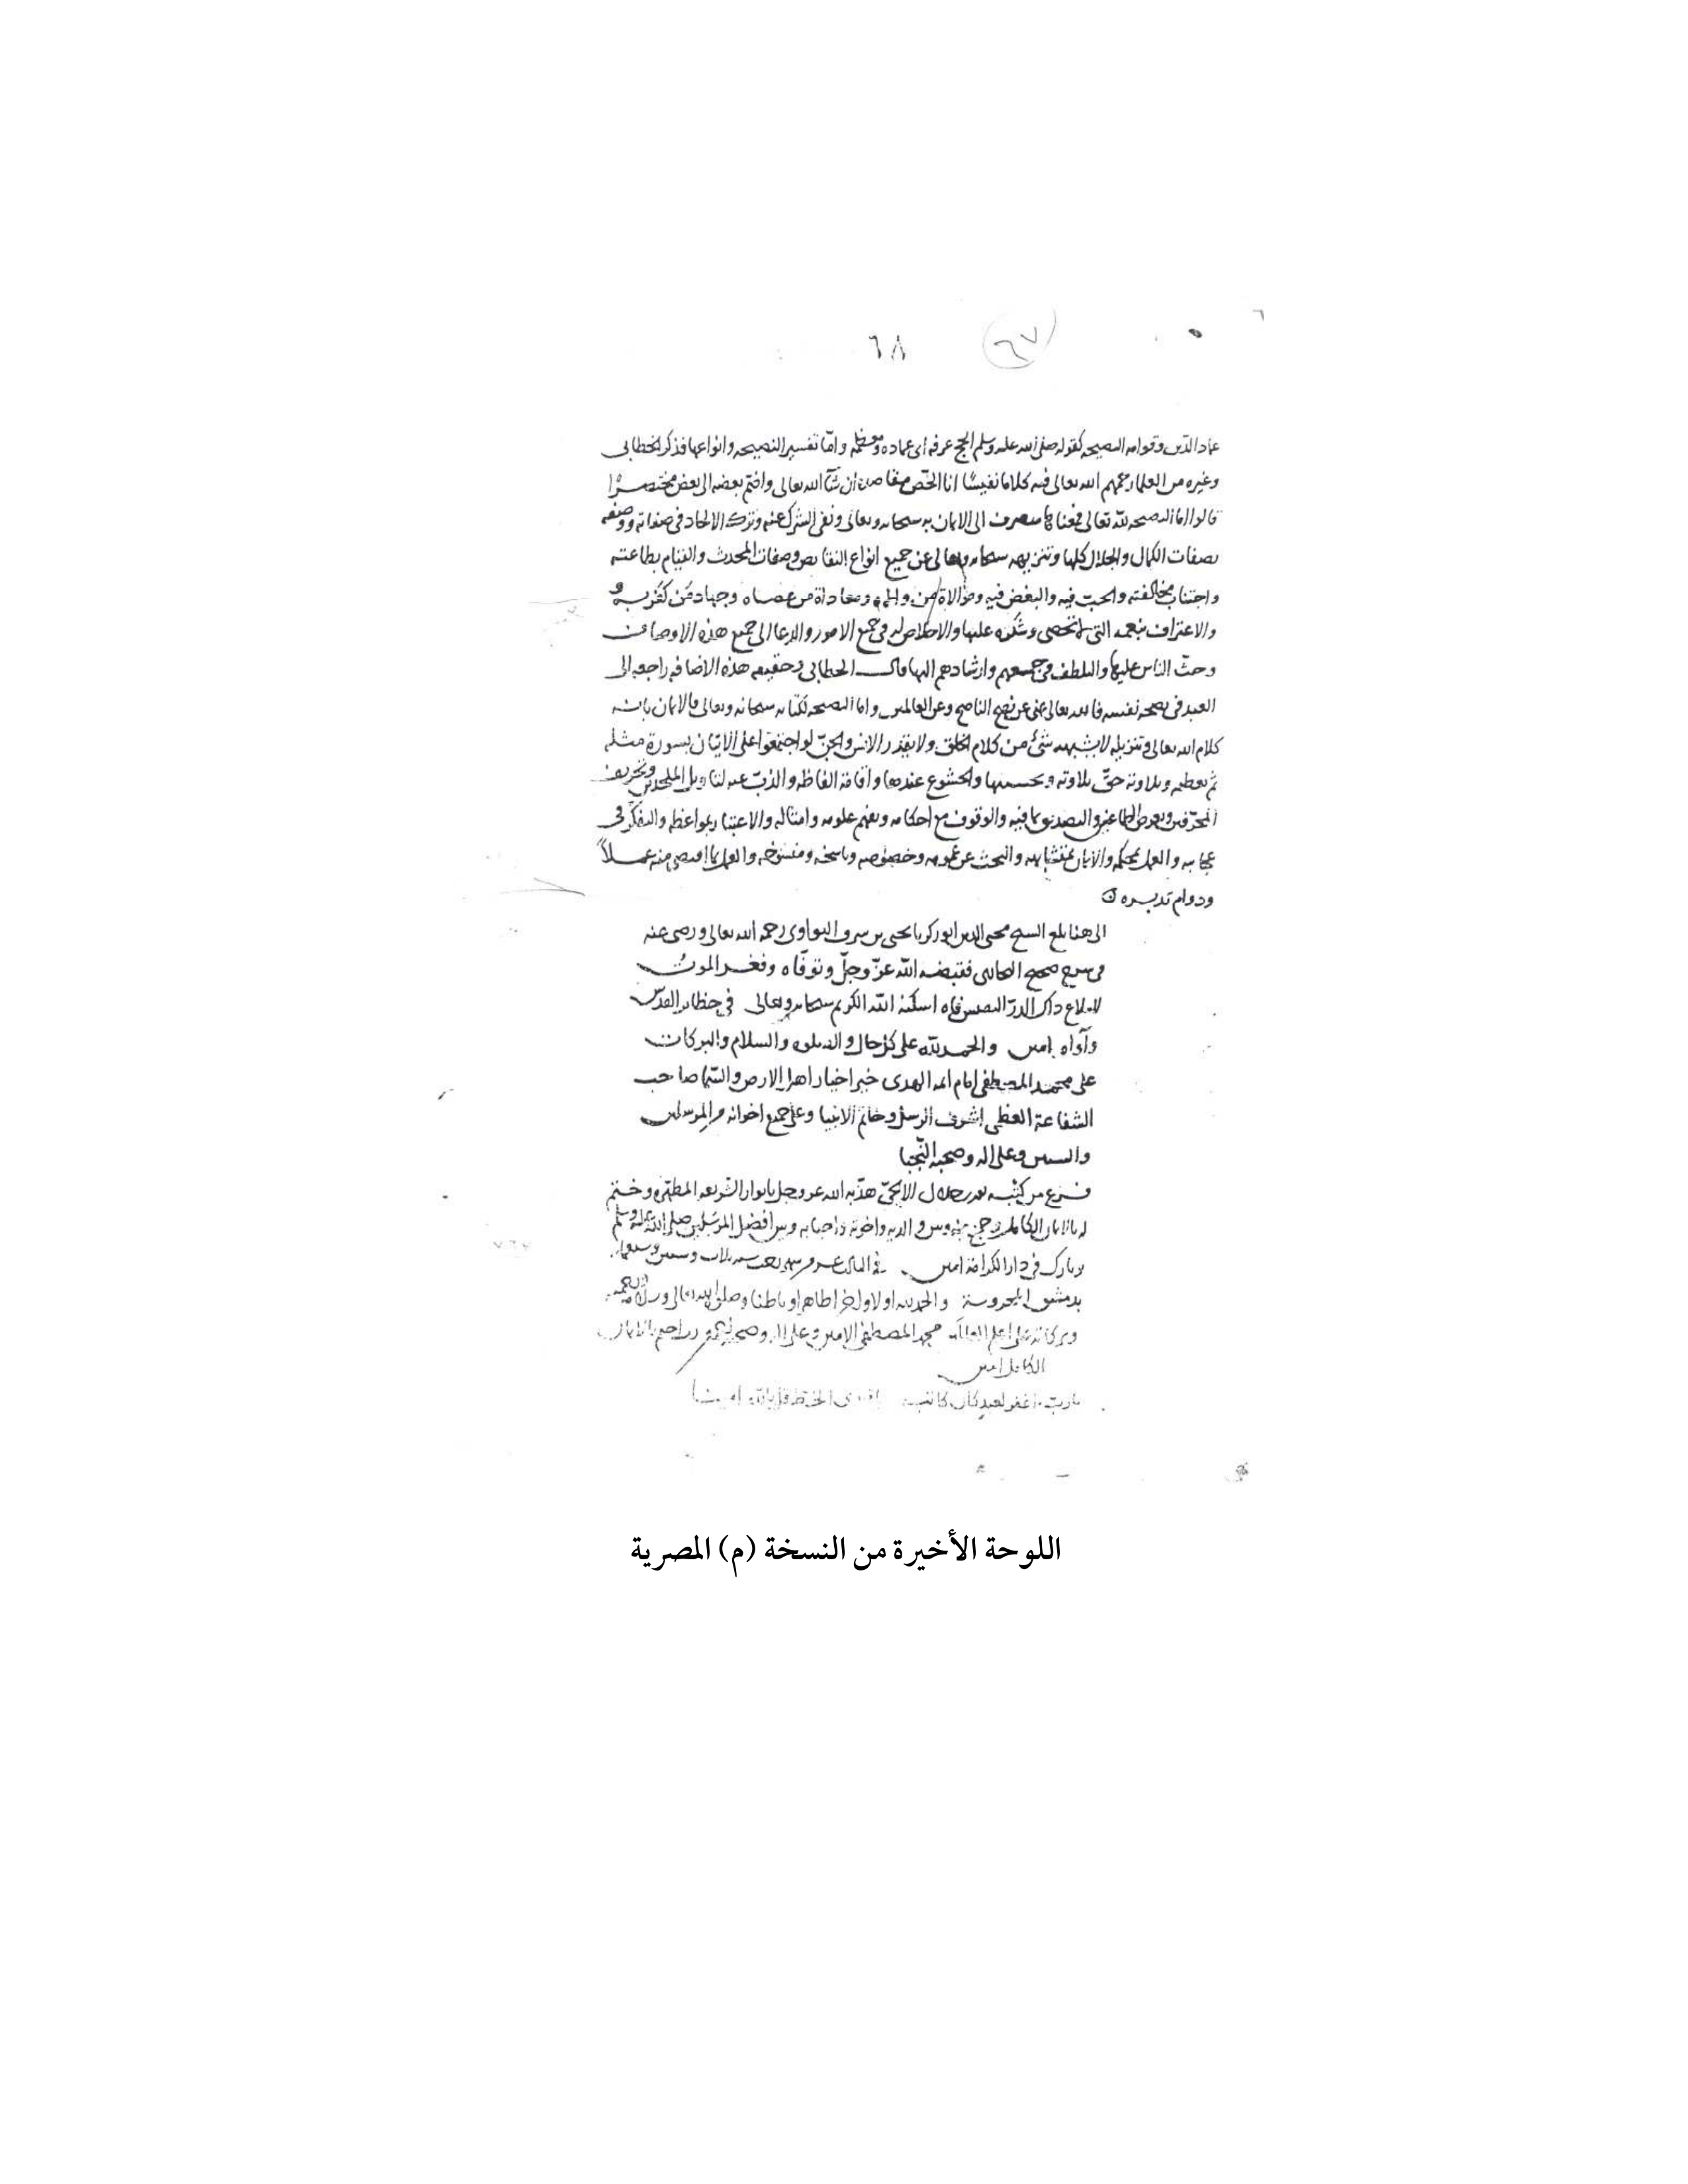 ٦٧
٦٨
عماد الدين وقوامه النصيحه كقوله صلى الله عليه وسلم الحج عرفه أى عماده ومعظمه وامّا تفسير النصيحه وانواعها فذكر الخطابى
وغيره من العلما رحمهم الله تعالى فيه كلاما نفيسًا انا الخّص مقاصده أن شآ الله تعالى واضم بعضه الى بعض مختصرًا
قالوا اما النصيحه لله تعالى فمعناها منصرف الى الايمان به سبحانه وتعالى ونفى الشرك عنه وترك الالحاد فى صفاته ووصفه
بصفات الكمال والجلال كلها وتنزيهه سبحانه وتعالى عن جميع انواع النقايص وصفات المحدث والقيام بطاعته
واجتناب مخالفته والحب فيه والبغض فيه وموالاة من والاه ومعاداة من عصاه وجهاد من كفر به و
والاعتراف بنعمه التى لا تحصى وشكره عليها والاخلاص له فى جميع الامور والدعا الى جميع هذه الاوصاف
وحثّ الناس عليها والتلطف فى جمعهم وارشادهم اليها قال الخطابى وحقيقه هذه الاضافه راجعه الى
العبد فى نصحه نفسه فالله تعالى غنى عن نصح الناصح وعن العالمين واما النصيحه لكتابه سبحانه وتعالى فالايمان بانه
كلام الله تعالى وتنزيله لا يشبهه شئ من كلام الخلق ولا يقدر الانس والجنّ لو اجتمعوا على الاتيان بسورة مثله
ثم تعظيمه وتلاوته حقّ تلاوته وتحسينها والخشوع عندها واقامة الفاظه والذبّ عنه لتاويل الملحدين وتحريف
المحرّفين وتعرض الطاعنين والتصديق بما فيه والوقوف مع احكامه وتفهم علومه وامثاله والاعتبار بمواعظه والتفكّر فى
عجايبه والعمل بمحكمه والايمان بمتشابهه والبحث عن عمومه وخصوصه وناسخه ومنسوخه والعمل بما اقتضى منه عملاً
ودوام تدبره
الى هنا بلغ الشيخ محيى الدين ابو زكريا يحيى بن شرف النواوى رحمه الله تعالى ورضى عنه
فى شرح صحيح البخارى فقبضه الله عزّ وجلّ وتوفّاه وفغر الموتُ
لابتلاع ذاك الدرّ النفيس فاه اسكنه الله الكريم سبحانه وتعالى فى حظاير القدس
وآواه امين والحمد لله على كل حال والصلوه والسلام والبركات
على محمد المصطفى امام ايمه الهدى خير اخيار اهل الارض والسّما صاحب
الشفاعة العظمى اشرف الرسل وخاتم الانبيا وعلى جميع اخوانه من المرسلين
والنبيين وعلى اله وصحبه النّجبا
فرغ من كتبه جلال الايجىّ هذّبه الله عز وجل بانوار الشريعه المطهره وختم
له بالايمان الكامل وجمع بينه وبين والديه واخوته واحبابه وبين افضل المرسلين صلى الله عليه وسلم
وبارك فى دار الكرامة امين فى الثالث عشر من شهر رجب سنه ثلاث وستين وسبعمايه
بدمشق المحروسة والحمد لله اولا واخرا ظاهرا وباطنا وصلى الله تعالى ورحمته
وبركاته على محمد المصطفى الامين وعلى اله وصحبه بالايمان
الكامل امين
يا ربّ اغفر لعبد كان كاتبه يا قارى الخط قل بالله امينا
اللوحة الأخيرة من النسخة (م) المصرية